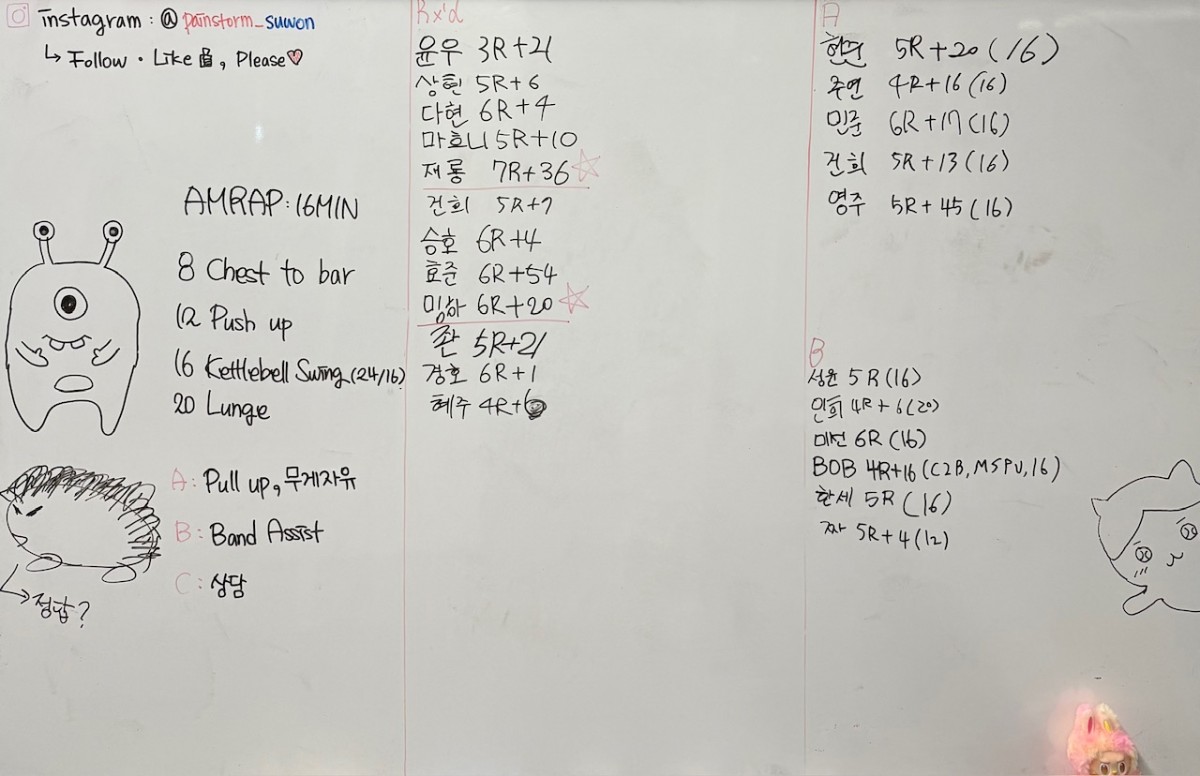 instagram : @painstorm_suwon
↳ Follow · Like 👍, Please♡
AMRAP : 16MIN
8 Chest to bar
12 Push up
16 Kettlebell Swing (24/16)
20 Lunge
A : Pull up, 무게자유
B : Band Assist
C : 상담
정답?
Rx'd
윤우 3R+21
상현 5R+6
다현 6R+4
마호니 5R+10
재룡 7R+36 ☆
건희 5R+7
승호 6R+4
효준 6R+54
밍하 6R+20 ☆
죤 5R+21
경호 6R+1
혜주 4R+6
A
5R+20 (16)
주연 4R+16 (16)
민준 6R+17 (16)
건희 5R+13 (16)
영주 5R+45 (16)
B
성윤 5R (16)
인희 4R+6 (20)
미선 6R (16)
BOB 4R+16 (C2B, MSPU, 16)
한세 5R (16)
짜 5R+4 (12)